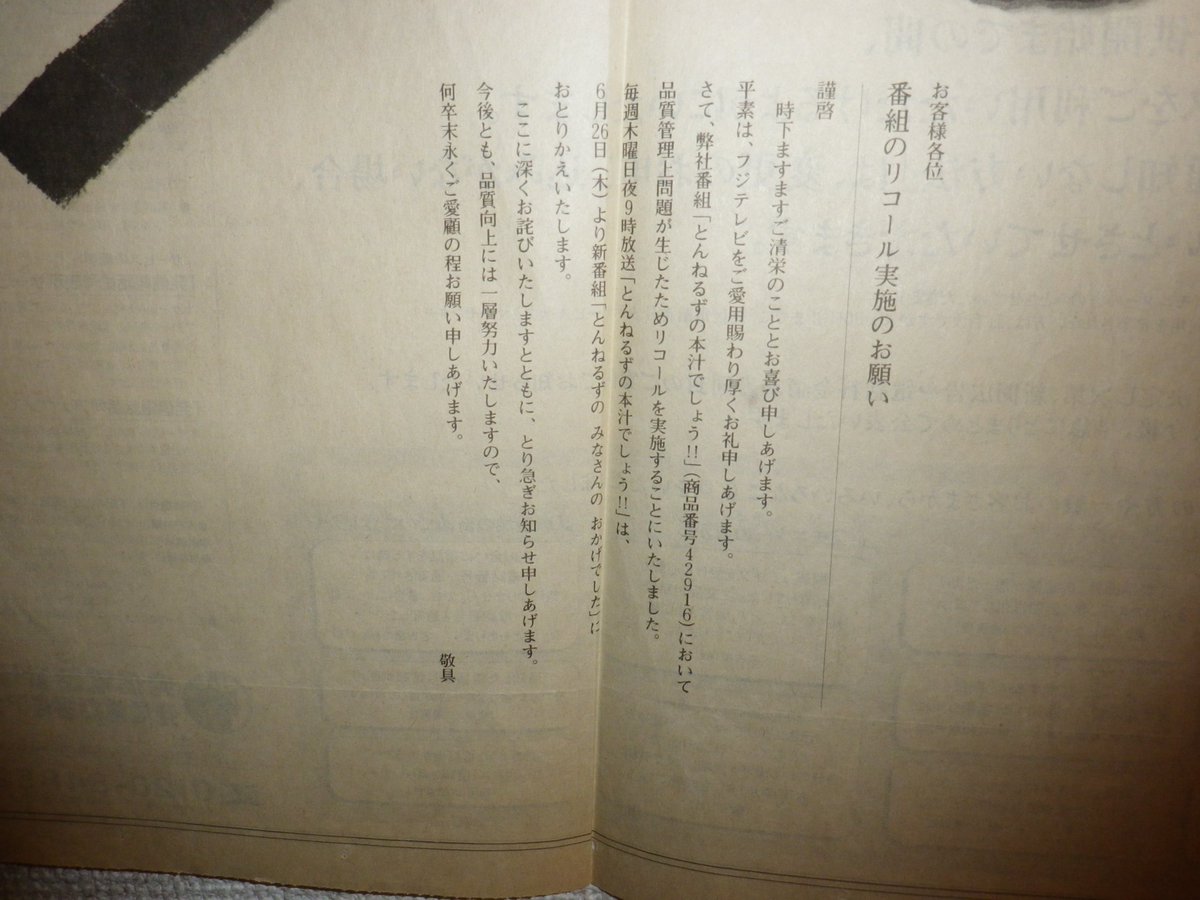 お客様各位
番組のリコール実施のお願い
謹啓
時下ますますご清栄のこととお喜び申しあげます。
平素は、フジテレビをご愛用賜わり厚くお礼申しあげます。
さて、弊社番組「とんねるずの本汁でしょう!!」(商品番号42916)において
品質管理上問題が生じたためリコールを実施することにいたしました。
毎週木曜日夜9時放送「とんねるずの本汁でしょう!!」は、
6月26日(木)より新番組「とんねるずの みなさんの おかげでした」に
おとりかえいたします。
ここに深くお詫びいたしますとともに、とり急ぎお知らせ申しあげます。
今後とも、品質向上には一層努力いたしますので、
何卒末永くご愛顧の程お願い申しあげます。
敬具